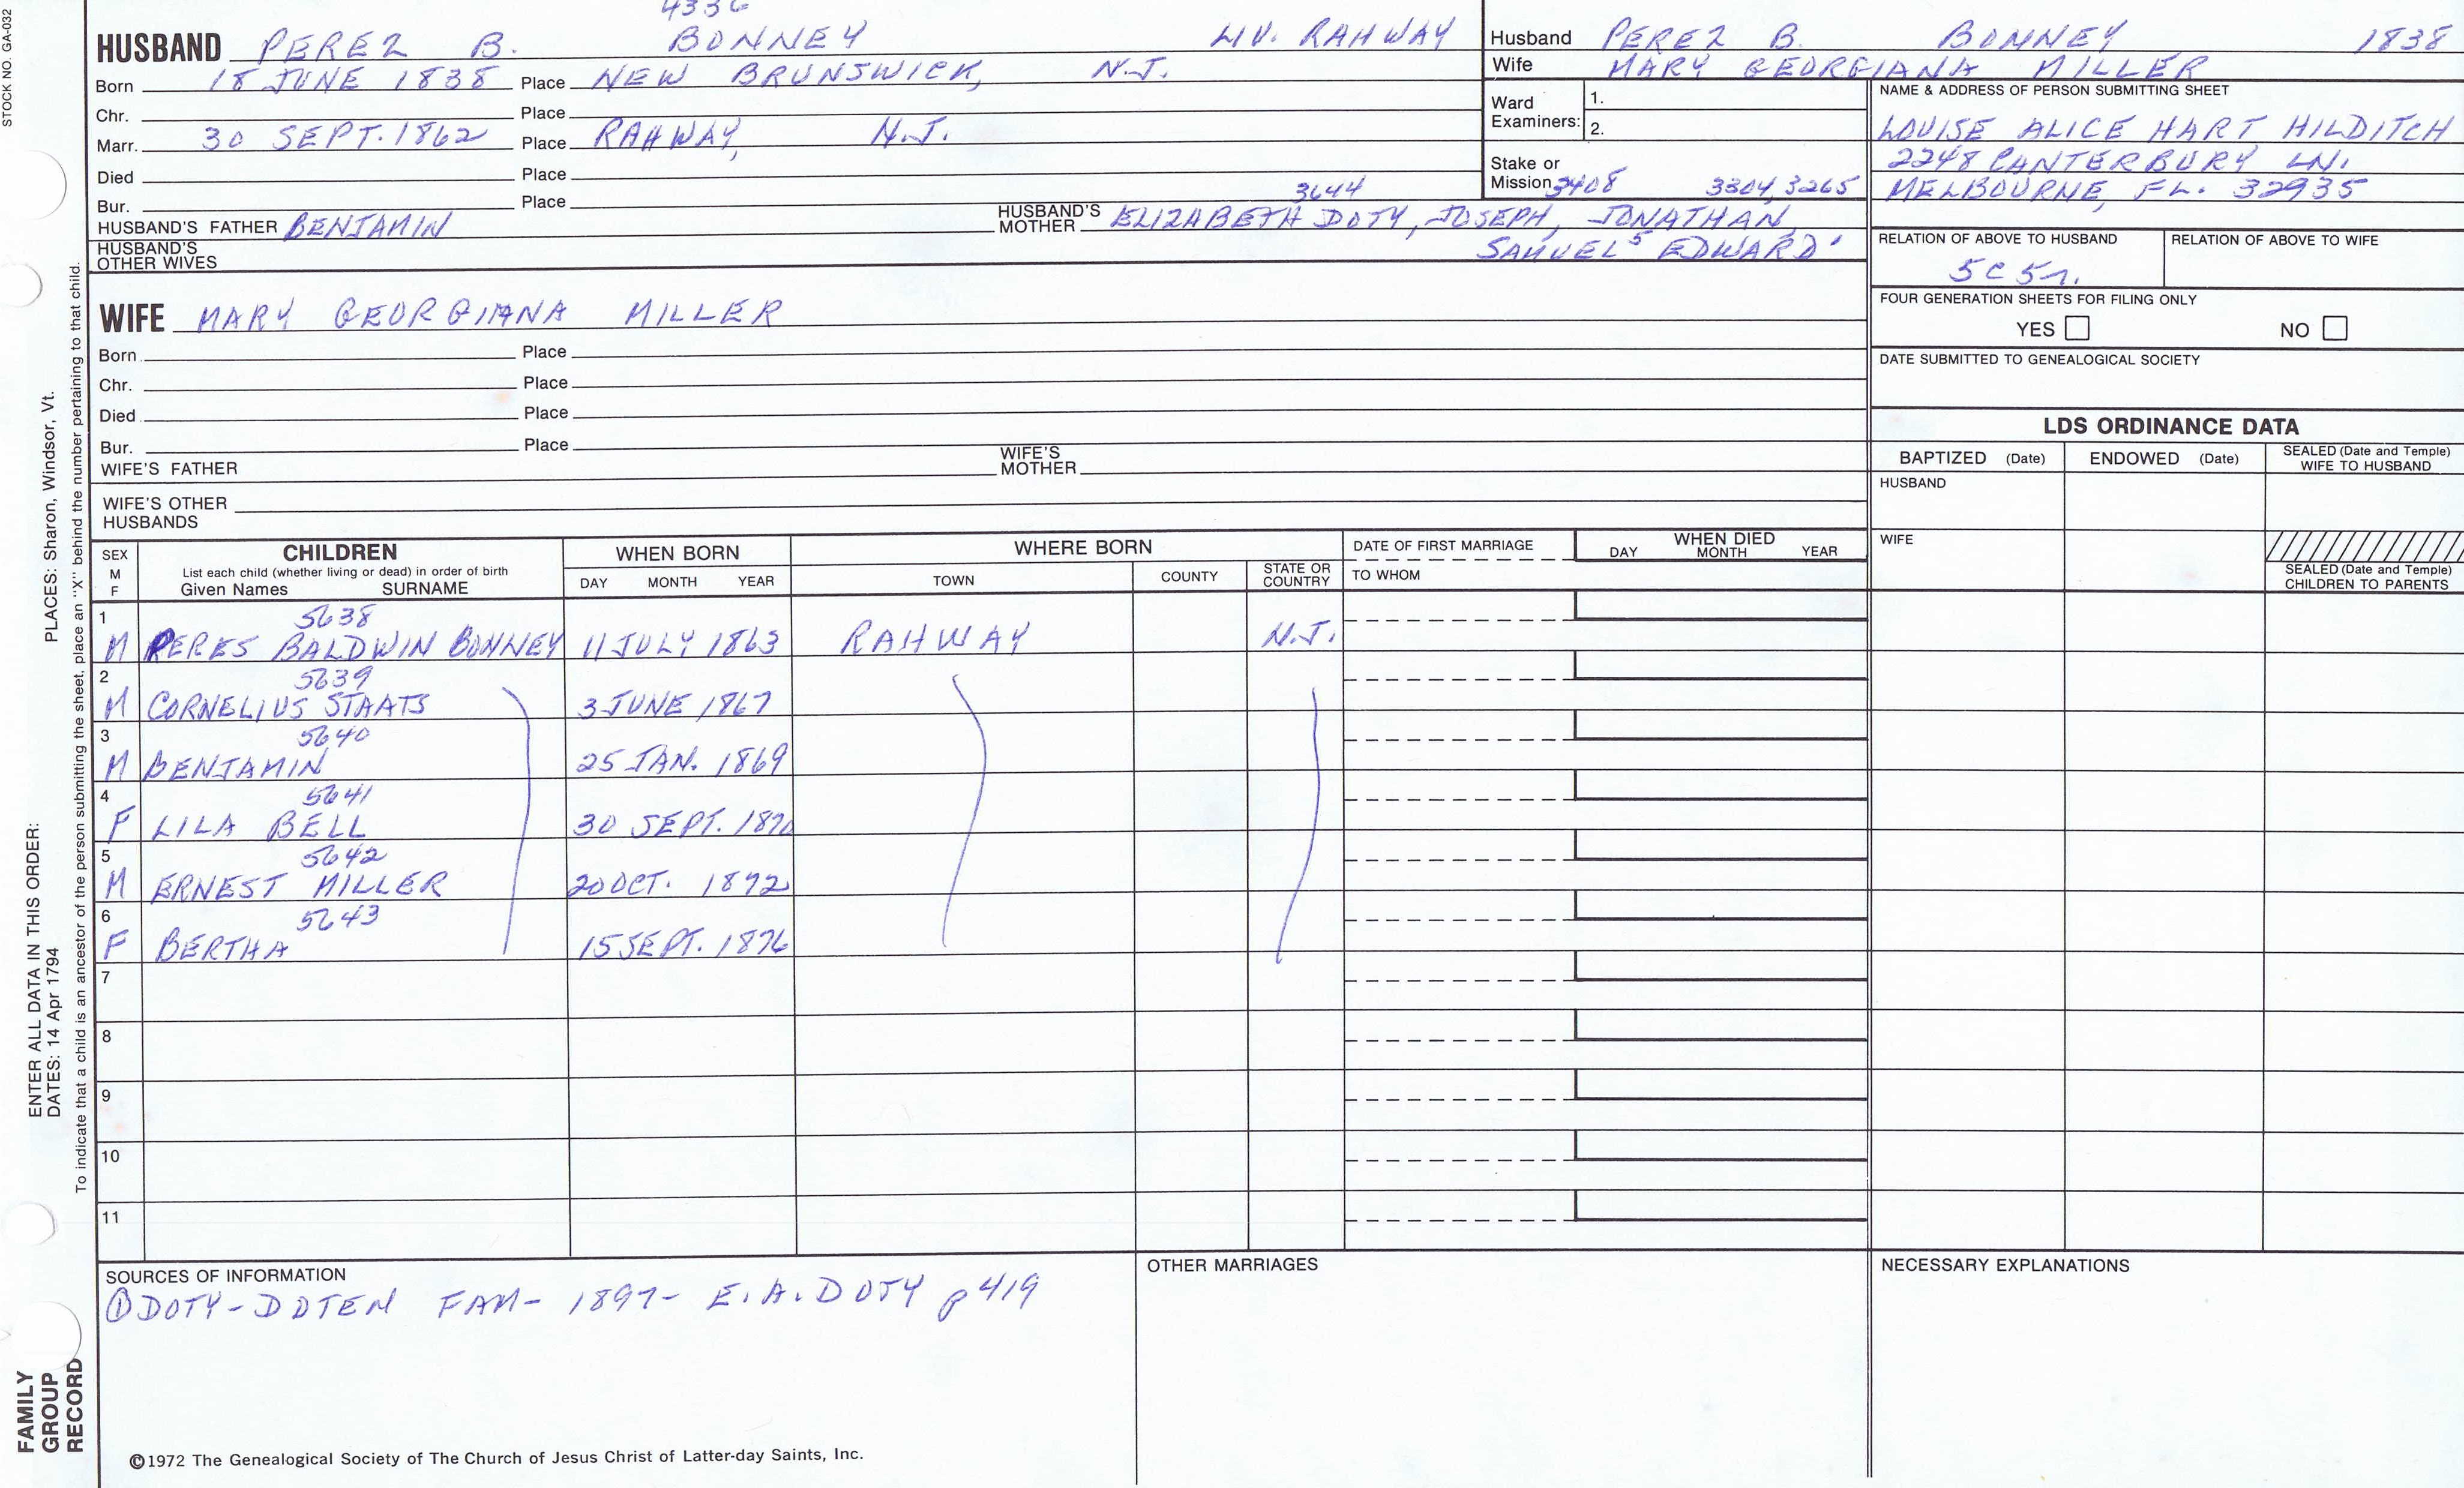 STOCK NO. GA-032
HUSBAND PEREZ B. BONNEY LIV. RAHWAY
Born 18 JUNE 1838 Place NEW BRUNSWICK, N.J.
Chr. Place
Marr. 30 SEPT. 1862 Place RAHWAY, N.J.
Died Place
Bur. Place 3644 3408 3304, 3265
HUSBAND'S FATHER BENJAMIN HUSBAND'S MOTHER ELIZABETH DOTY, JOSEPH, JONATHAN,
HUSBAND'S OTHER WIVES SAMUEL⁵ EDWARD'
Husband PEREZ B. BONNEY 1838
Wife MARY GEORGIANA MILLER
Ward Examiners: 1.
2.
Stake or Mission
NAME & ADDRESS OF PERSON SUBMITTING SHEET
LOUISE ALICE HART HILDITCH
2248 CANTERBURY LN.
MELBOURNE, FL. 32935
RELATION OF ABOVE TO HUSBAND RELATION OF ABOVE TO WIFE
5C 5r.
FOUR GENERATION SHEETS FOR FILING ONLY
YES NO
DATE SUBMITTED TO GENEALOGICAL SOCIETY
WIFE MARY GEORGIANA MILLER
Born Place
Chr. Place
Died Place
Bur. Place
WIFE'S FATHER WIFE'S MOTHER
WIFE'S OTHER HUSBANDS
LDS ORDINANCE DATA
BAPTIZED (Date) ENDOWED (Date) SEALED (Date and Temple) WIFE TO HUSBAND
HUSBAND
WIFE
SEALED (Date and Temple) CHILDREN TO PARENTS
SEX M F CHILDREN List each child (whether living or dead) in order of birth Given Names SURNAME WHEN BORN DAY MONTH YEAR WHERE BORN TOWN COUNTY STATE OR COUNTRY DATE OF FIRST MARRIAGE TO WHOM WHEN DIED DAY MONTH YEAR
1 5638
M PERES BALDWIN BONNEY 11 JULY 1863 RAHWAY N.J.
2 5639
M CORNELIUS STAATS 3 JUNE 1867
3 5640
M BENJAMIN 25 JAN. 1869
4 5641
F LILA BELL 30 SEPT.
5 5642
M ERNEST MILLER 20 OCT. 1872
6 5643
F BERTHA 15 SEPT. 1876
7
8
9
10
11
SOURCES OF INFORMATION
① DOTY-DOTEN FAM- 1897- E.A. DOTY p 419
OTHER MARRIAGES
NECESSARY EXPLANATIONS
©1972 The Genealogical Society of The Church of Jesus Christ of Latter-day Saints, Inc.
ENTER ALL DATA IN THIS ORDER: PLACES: Sharon, Windsor, Vt.
DATES: 14 Apr 1794
To indicate that a child is an ancestor of the person submitting the sheet, place an "X" behind the number pertaining to that child.
FAMILY GROUP RECORD